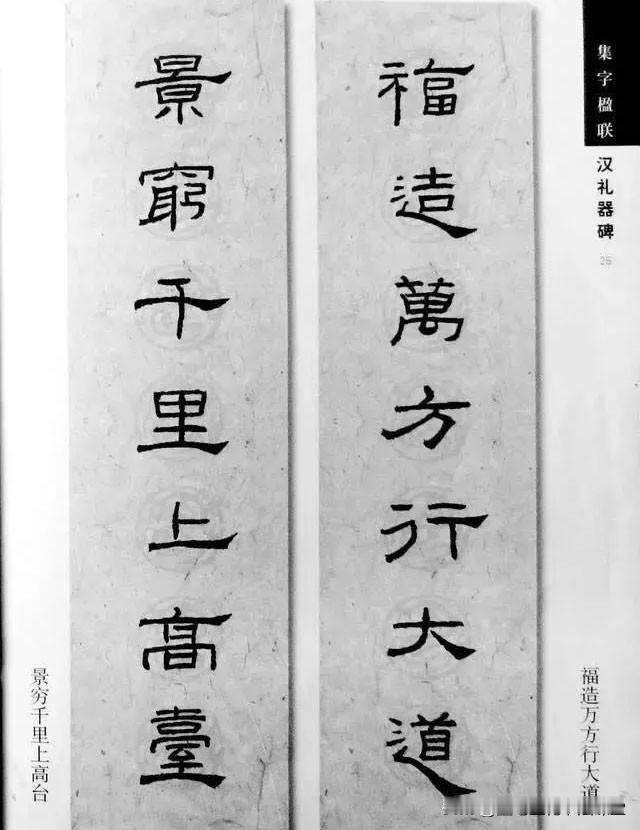 集字楹联
汉礼器碑
25
福造萬方行大道
福造万方行大道
景窮千里上高臺
景穷千里上高台